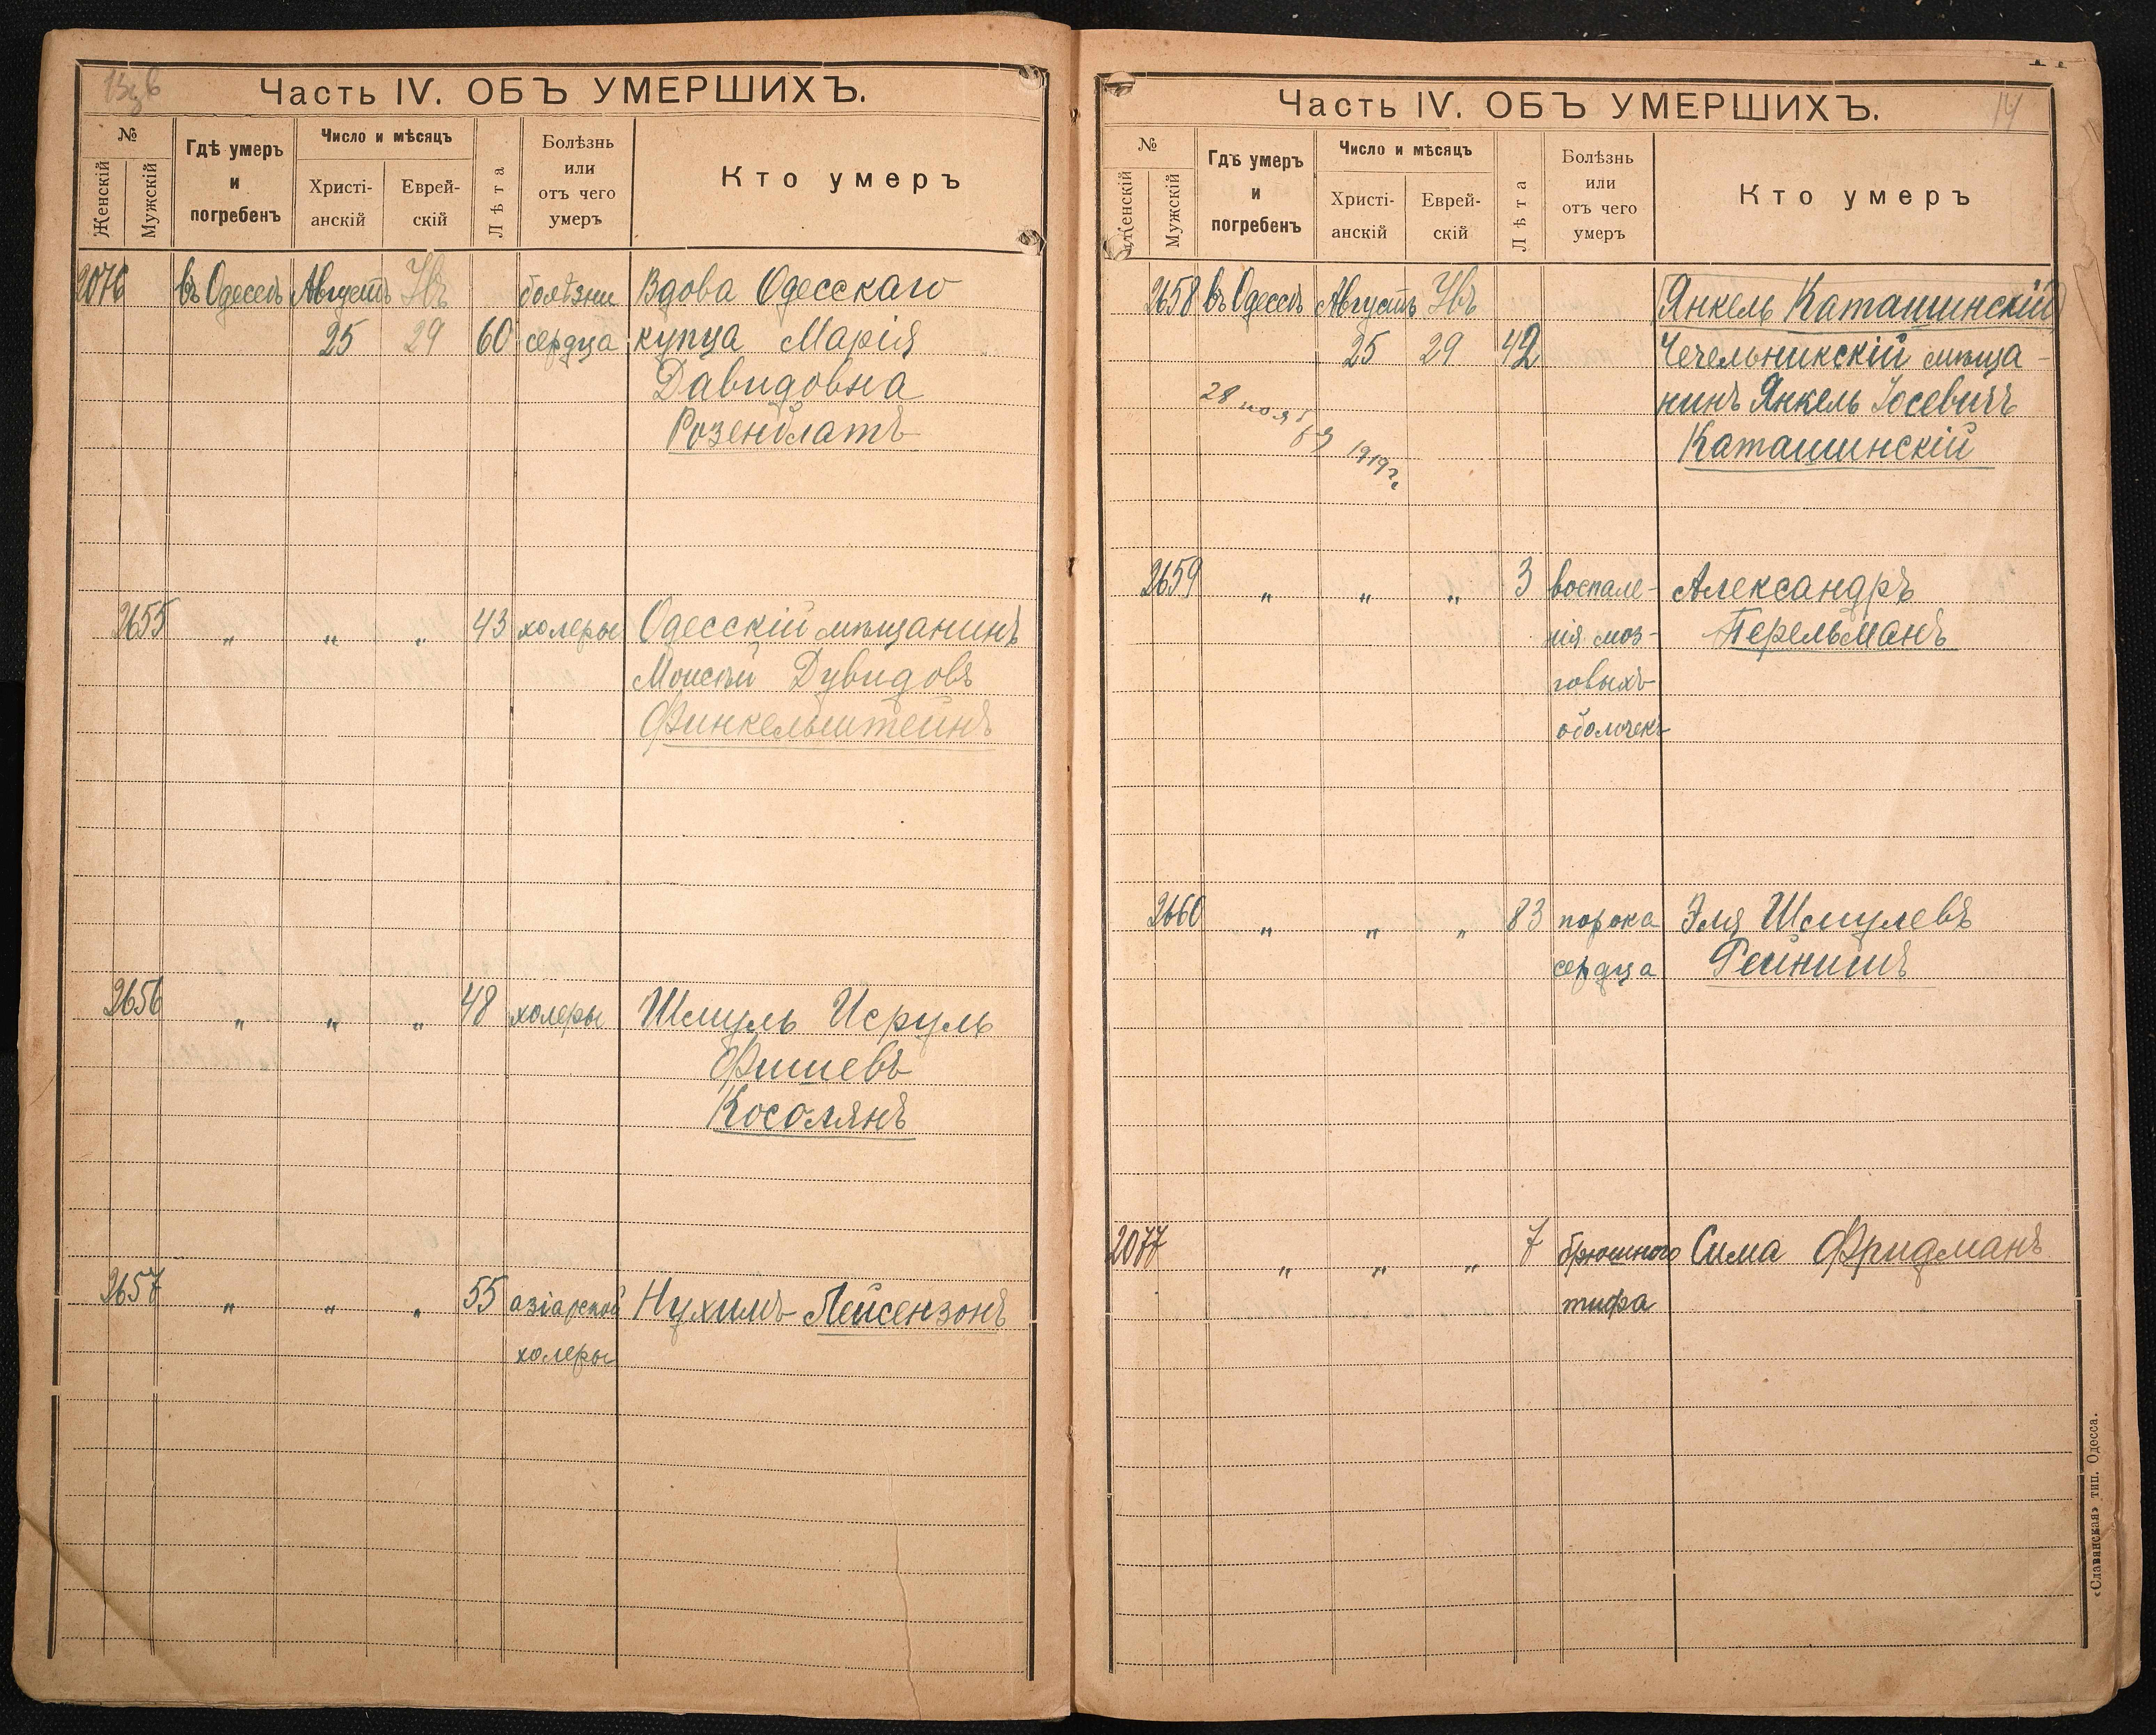 Часть IV. ОБЪ УМЕРШИХЪ.
№
Женскій
Мужскій
Гдѣ умеръ
и
погребенъ
Число и мѣсяцъ
Христі-
анскій
Еврей-
скій
Лѣта
Болѣзнь
или
отъ чего
умеръ
Кто умеръ
2076 въ Одессѣ Августъ болѣзни Вдова Одесскаго
25 29 60 сердца купца Марія
Давидовна
Розенблатъ
2655 " " " 43 холеры Одесскій мѣщанинъ
Моисей Дувидовъ
Финкельштейнъ
2656 " " " 48 холеры Шмуль Исруль
Фишевъ
Косолянъ
2657 " " " 55 азіатской Нухимъ Лейсензонъ
холеры
Часть IV. ОБЪ УМЕРШИХЪ.
14
№
Женскій
Мужскій
Гдѣ умеръ
и
погребенъ
Число и мѣсяцъ
Христі-
анскій
Еврей-
скій
Лѣта
Болѣзнь
или
отъ чего
умеръ
Кто умеръ
2658 въ Одессѣ Августъ Янкель Каташинскій
25 29 42 Чечельникскій мѣща-
нинъ Янкель Іосевичъ
Каташинскій
28 1919 г.
2659 " " " 3 воспале- Александръ
нія моз- Перельманъ
говыхъ
оболочекъ
2660 " " " 83 порока Эля Шмулевъ
сердца Рейнишъ
2077 " " " 7 брюшного Сима Фридманъ
тифа
«Славянская» тип. Одесса.